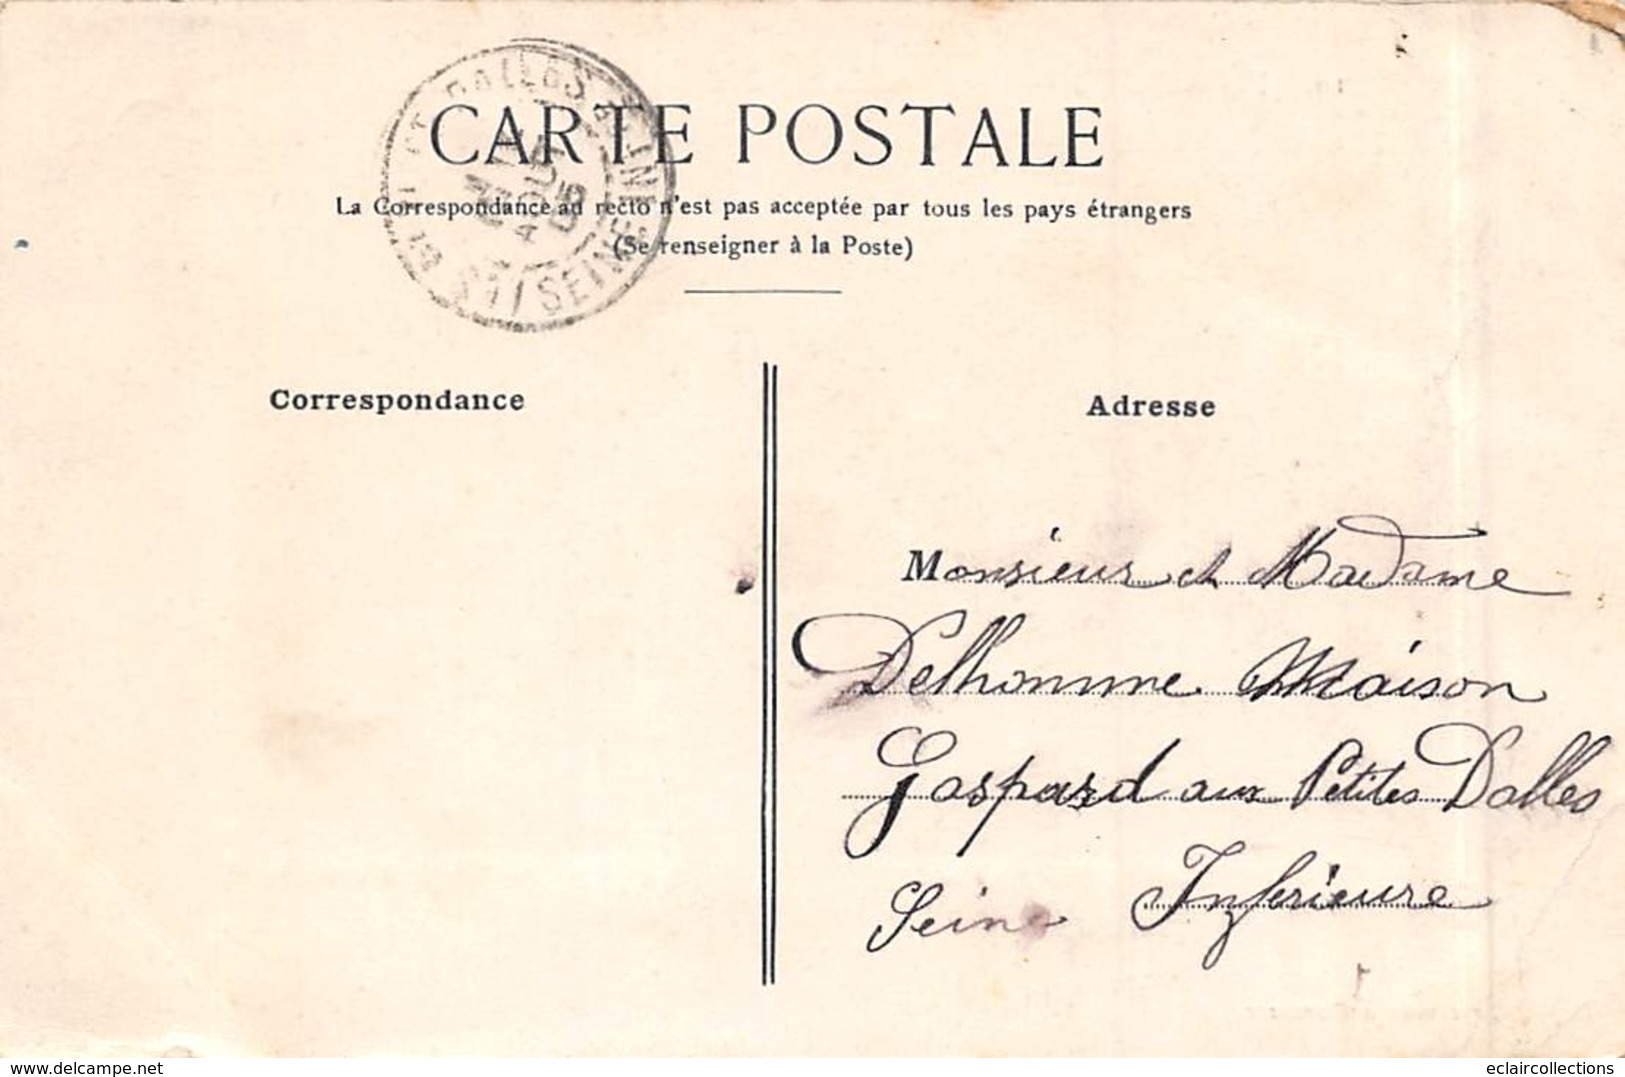 CARTE POSTALE
La Correspondance au recto n'est pas acceptée par tous les pays étrangers
(Se renseigner à la Poste)
SEINE INF
Correspondance
Adresse
Monsieur et Madame
Delhomme Maison
Gaspard aux Petites Dalles
Seine Inférieure
www.delcampe.net
eclaircollections